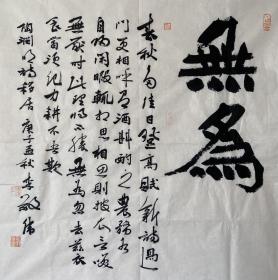 無為
春秋多佳日登高賦新詩過
門更相呼有酒斟酌之農務各
自歸閒暇輒相思相思則披衣言笑
無厭時此理將不勝無為忽去茲衣
食當須紀力耕不吾欺
陶淵明詩移居 庚子孟秋李